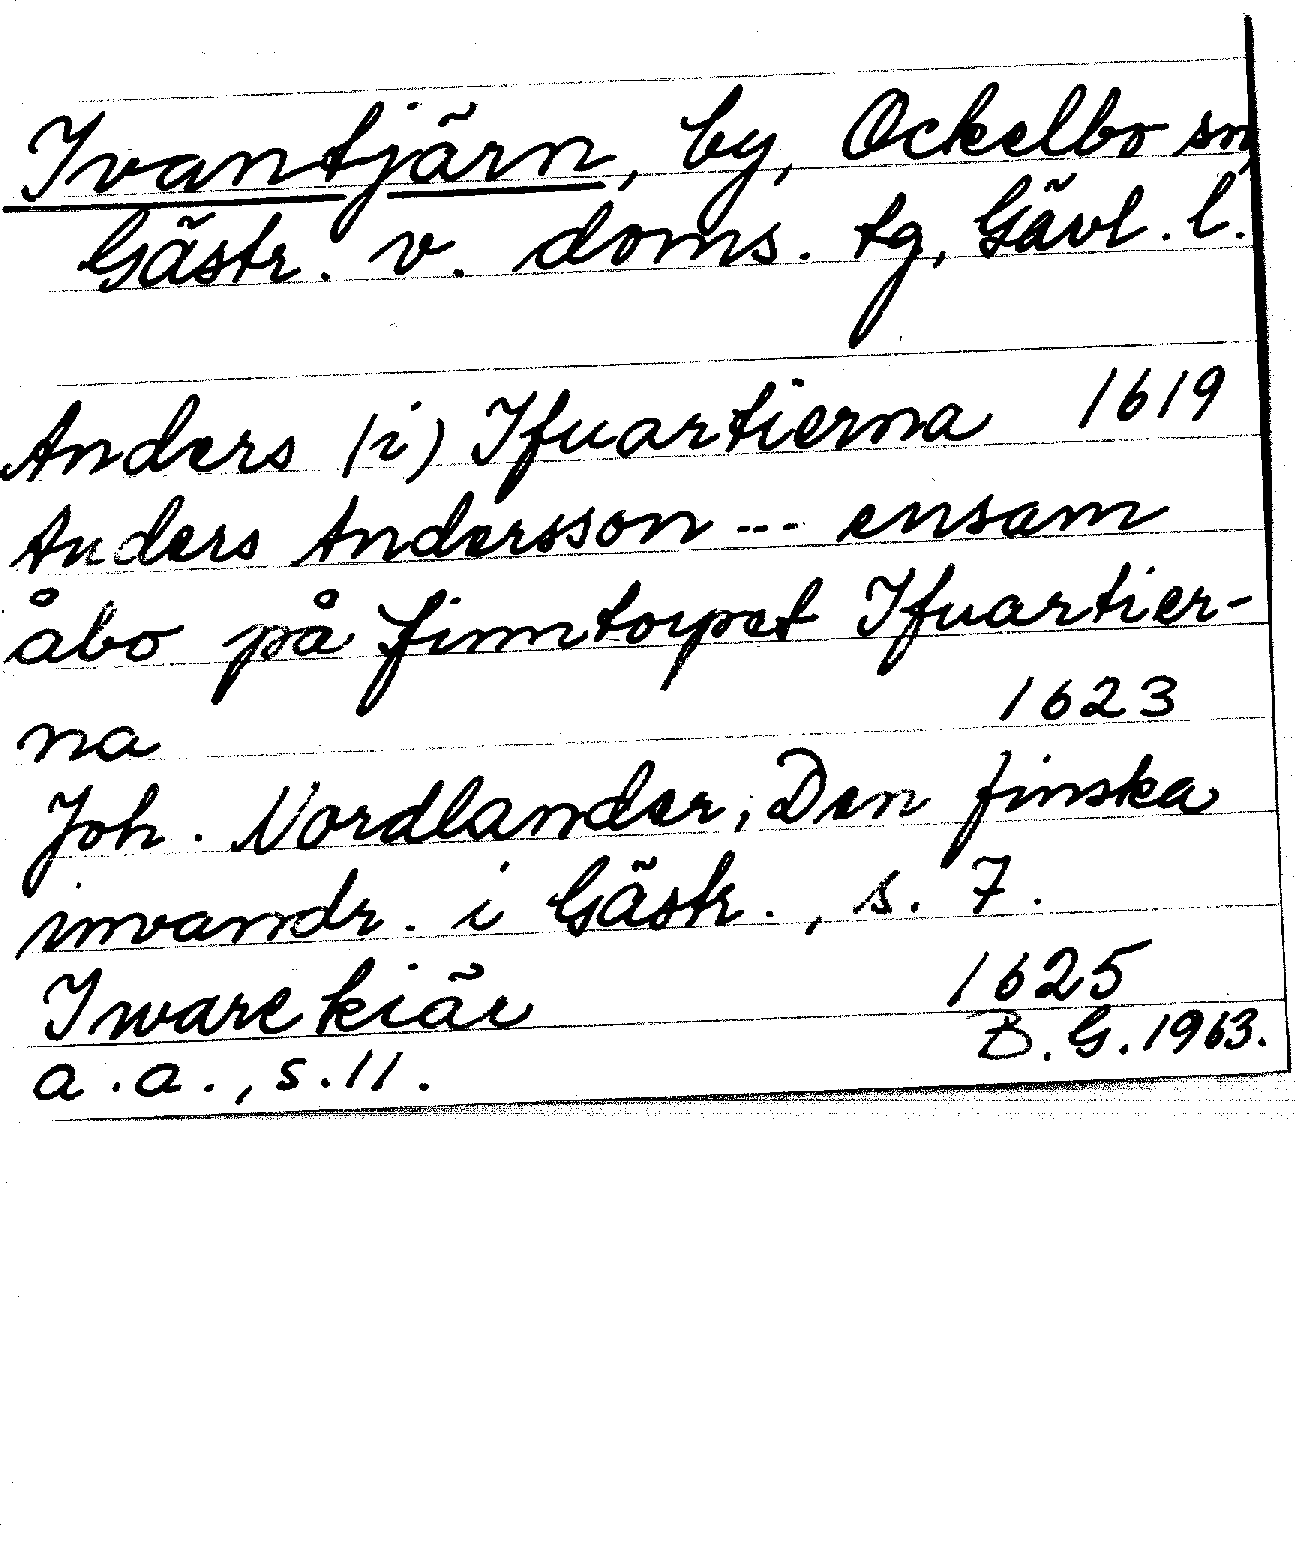 Ivantjärn, by, Ockelbo sn,
Gästr. v. doms. tg, Gävl. l.
Anders (i) Ifuartierna 1619
Anders Andersson --- ensam
åbo på finntorpet Ifuartier-
na 1623
Joh. Nordlander, Den finska
invandr. i Gästr., s. 7.
Iwarekiär 1625
a.a., s. 11. B.G. 1963.